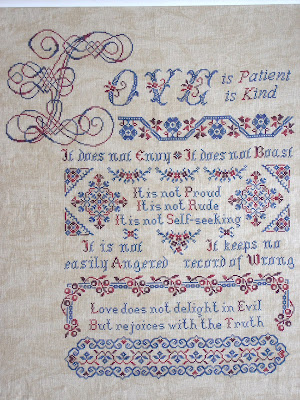 Love is Patient
is Kind
It does not Envy It does not Boast
It is not Proud
It is not Rude
It is not Self-seeking
It is not
easily Angered
It keeps no
record of Wrong
Love does not delight in Evil
But rejoices with the Truth